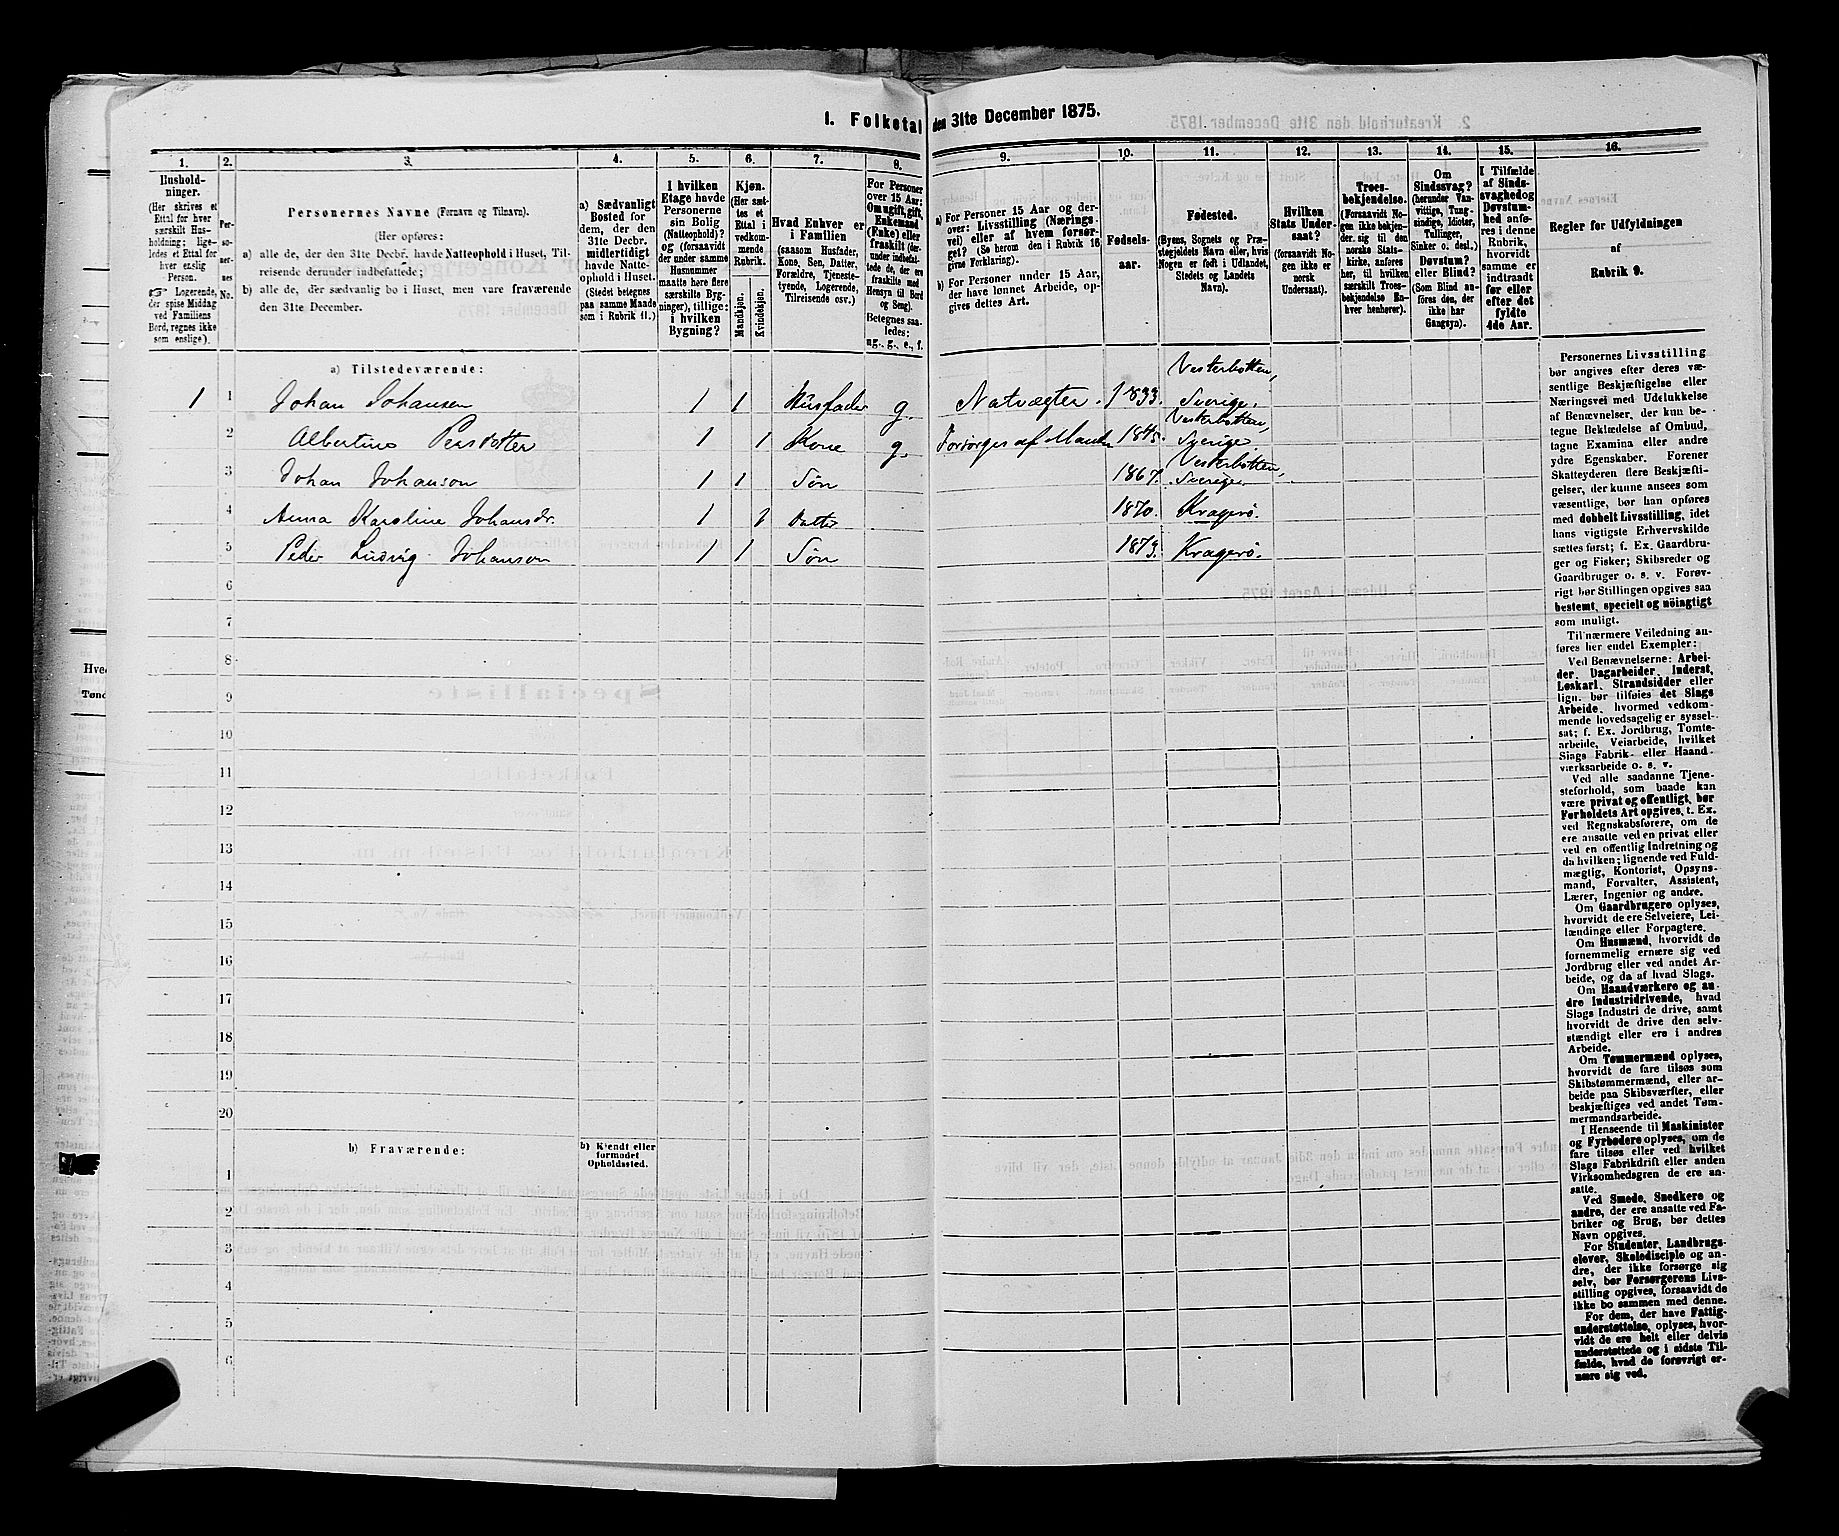 1. Folketal den 31te December 1875.
1. 2. 3. 4. 5. 6. 7. 8. 9. 10. 11. 12. 13. 14. 15. 16.
Hushold-
ninger.
(Her skrives et
Ettal for hver
særskilt Hus-
holdning; lige-
ledes et Ettal for
hver enslig
Person.
☞ Logerende,
der spise Middag
ved Familiens
Bord, regnes ikke
som enslige).
Per-
so-
ner-
nes
No.
Personernes Navne (Fornavn og Tilnavn).
(Her opføres:
a) alle de, der den 31te Decbr. havde Natteophold i Huset, Til-
reisende derunder indbefattede;
b) alle de, der sædvanlig bo i Huset, men vare fraværende
den 31te December.
a) Sædvanligt
Bosted for
dem, der den
31te Decbr.
midlertidigt
havde Natte-
ophold i Huset.
(Stedet betegnes
paa samme Maade
som i Rubrik 11.)
I hvilken
Etage havde
Personerne
sin Bolig
(Natteophold)?
og (forsaavidt
der under samme
Husnummer
maatte høre flere
særskilte Byg-
ninger), tillige:
i hvilken
Bygning?
Kjøn.
(Her sæt-
tes et
Ettal i
vedkom-
mende
Rubrik.
Mandkjøn.
Kvindekjøn.
Hvad Enhver er
i Familien
(saasom Husfader,
Kone, Søn, Datter,
Forældre, Tjeneste-
tyende, Logerende,
Tilreisende osv.)
For Personer
over 15 Aar:
Om ugift, gift,
Enkemand
(Enke) eller
fraskilt (der-
under indbefat-
tede de, der ere
fraskilte med
Hensyn til Bord
og Seng).
Betegnes saa-
ledes:
ug., g., e., f.
a) For Personer 15 Aar og der-
over: Livsstilling (Nærings-
vei) eller af hvem forsør-
get? (Se herom den i Rubrik 16
givne Forklaring).
b) For Personer under 15 Aar,
der have lønnet Arbeide, op-
gives dettes Art.
Fødsels-
aar.
Fødested.
(Byens, Sognets og Præ-
stegjeldets Navn eller, hvis
Nogen er født i Udlandet,
Stedets og Landets
Navn).
Hvilken
Stats Under-
saat?
(forsaavidt No-
gen ikke er
norsk
Undersaat).
Troes-
bekjendelse.
(Forsaavidt No-
gen ikke bekjen-
der sig til den
norske Stats-
kirke, anføres
her, til hvilken
særskilt Troes-
bekjendelse En-
hver henhører).
Om
Sindssvag?
(herunder Van-
vittige, Tung-
sindige, Idioter,
Tullinger,
Sinker o. desl.)
Døvstum?
eller Blind?
(Som Blind an-
føres den, der
ikke har
Gangsyn).
I Tilfælde
af Sinds-
svaghed og
Døvstum-
hed anfø-
res i denne
Rubrik,
hvorvidt
samme er
indtraadt
før eller
efter det
fyldte
4de Aar.
Regler for Udfyldningen
af
Rubrik 9.
a) Tilstedeværende:
1 1 Johan Johansen 1 1 Husfader g. Natvægter. 1833. Vesterbotten,
Sverige.
2 Albertine Persdotter 1 1 Kone g. Forsørges af Manden 1845. Vesterbotten,
Sverige
3 Johan Johanson 1 1 Søn 1867. Vesterbotten,
Sverige
4 Anna Karoline Johansdr. 1 1 Datter 1870. Kragerö.
5 Peder Ludvig Johanson 1 1 Søn 1873. Kragerö.
6
7
8
9
10
11
12
13
14
15
16
17
18
19
20
b) Fraværende:
b) Kjendt eller
formodet
Opholdssted.
1
2
3
4
5
6
Personernes Livsstilling
bør angives efter deres væ-
sentlige Beskjæftigelse eller
Næringsvei med Udelukkelse
af Benævnelser, der kun be-
tegne Beklædelse af Ombud,
tagne Examina eller andre
ydre Egenskaber. Forener
Skatteyderen flere Beskjæfti-
gelser, der kunne ansees som
væsentlige, bør han opføres
med dobbelt Livsstilling, idet
hans vigtigste Erhvervskilde
sættes først; f. Ex. Gaardbru-
ger og Fisker; Skibsreder og
Gaardbruger o. s. v. Forøv-
rigt bør Stillingen opgives saa
bestemt, specielt og nöiagtigt
som muligt.
Til nærmere Veiledning an-
føres her endel Exempler:
Ved Benævnelserne: Arbei-
der, Dagarbeider, Inderst,
Løskarl, Strandsidder eller
lign. bør tilføies det Slags
Arbeide, hvormed vedkom-
mende hovedsagelig er syssel-
sat; f. Ex. Jordbrug, Tomte-
arbeide, Veiarbeide, hvilket
Slags Fabrik- eller Haand-
værksarbeide o. s. v.
Ved alle saadanne Tjene-
steforhold, som baade kan
være privat og offentligt, bør
Forholdets Art opgives, t. Ex.
ved Regnskabsførere, om de
ere ansatte ved en privat eller
ved en offentlig Indretning og
da hvilken; lignende ved Fuld-
mægtig, Kontorist, Opsyns-
mand, Forvalter, Assistent,
Lærer, Ingeniør og andre.
Om Gaardbrugere oplyses,
hvorvidt de ere Selveiere, Lei-
lændinge eller Forpagtere.
Om Husmænd, hvorvidt de
fornemmelig ernære sig ved
Jordbrug eller ved andet Ar-
beide, og da af hvad Slags.
Om Haandværkere og an-
dre Industridrivende, hvad
Slags Industri de drive, samt
hvorvidt de drive den selv-
stændigt eller ere i andres
Arbeide.
Om Tømmermænd oplyses,
hvorvidt de fare tilsøs som
Skibstømmermænd, eller ar-
beide paa Skibsværfter, eller
beskjæftiges ved andet Tøm-
mermandsarbeide.
I Henseende til Maskinister
og Fyrbødere oplyses, om de
fare tilsøs eller ved hvilket
Slags Fabrikdrift eller anden
Virksomhedsgren de ere an-
satte.
Ved Smede, Snedkere og
andre, der ere ansatte ved Fa-
briker og Brug, bør dettes
Navn opgives.
For Studenter, Landbrugs-
elever, Skoledisciple og an-
dre, der ikke forsørge sig
selv, bør Forsørgerens Livs-
stilling opgives, forsaavidt de
ikke bo sammen med denne.
For dem, der have Fattig-
understøttelse, oplyses, hvor-
vidt de ere helt eller delvis
understøttede og i sidste Til-
fælde, hvad de forøvrigt er-
nære sig ved.